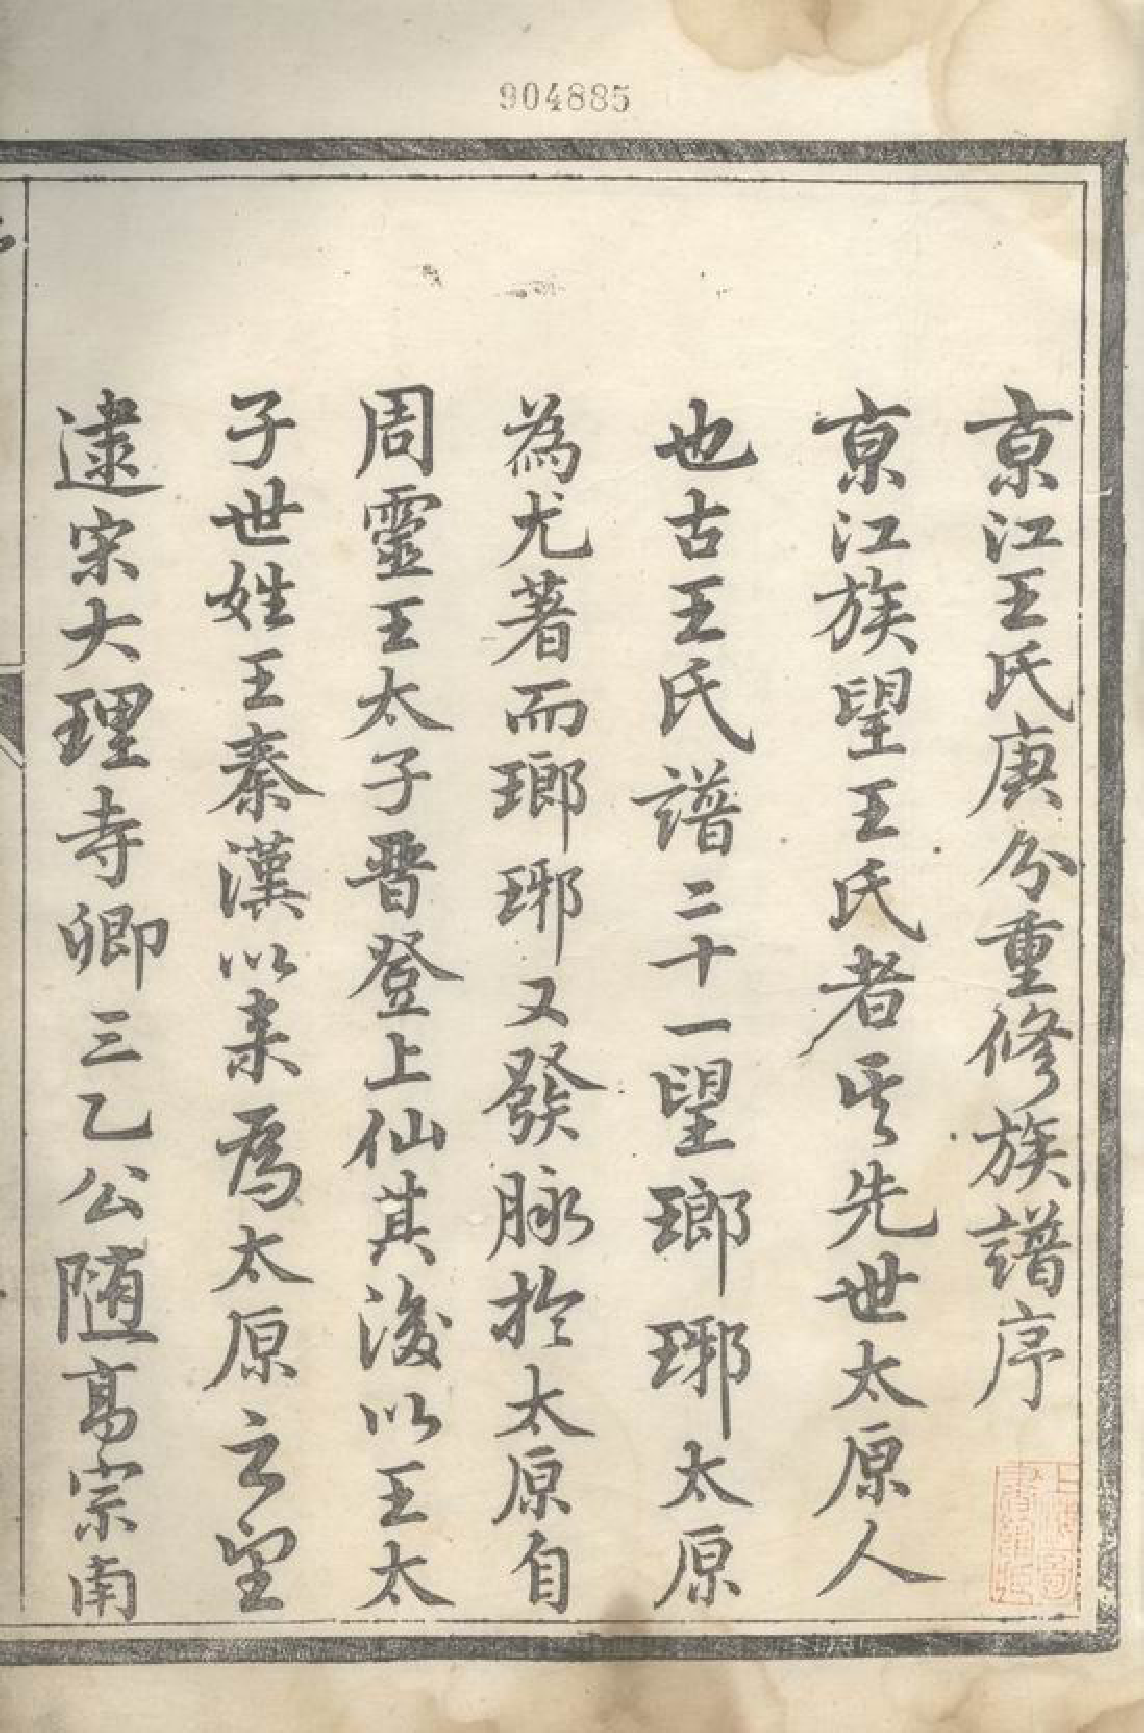 904885
京江王氏庚分重修族譜序
京江族望王氏者其先世太原人
也古王氏譜二十一望瑯琊太原
為尤著而瑯琊又發脉於太原自
周靈王太子晋登上仙其後以王太
子世姓王秦漢以来為太原之望
逮宋大理寺卿三乙公随髙宗南
上海圖書館藏